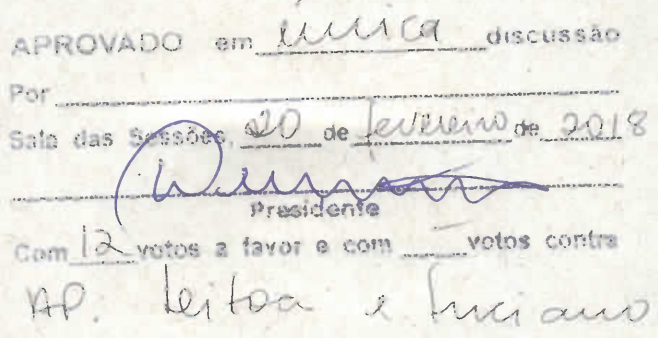 APROVADO em única discussão
Por
Sala das Sessões, 20 de fevereiro de 2018
Presidente
Com 12 votos a favor e com — votos contra
AP. Leitoa e Luciano